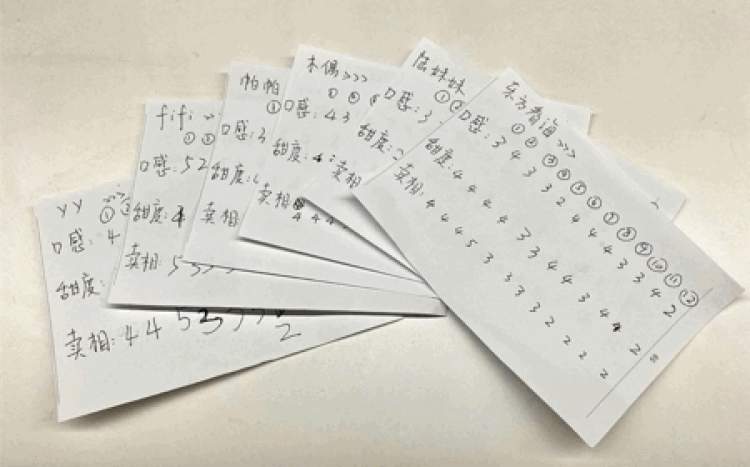 yy
①
口感: 4
甜度:
卖相: 4 4 5 3
2
fifi
① ②
口感: 5 2
甜度: 4
卖相: 5 3
帕帕
①
口感: 3
甜度:
卖相:
木偶 >>>
① ②
口感: 4 3
甜度: 4
卖相
4 4 4
屈妹妹
① ②
口感: 3
甜度: 2
卖相
>>>
① ② ③ ④ ⑤ ⑥ ⑦ ⑧ ⑨ ⑩ ⑪ ⑫
口感: 3 4 3 3 2 4 4 4 3 3 4 2
甜度: 4 4 4 4 3 3 4 4 3 4 2
卖相: 4 4 4 5 3 3 3 3 2 2 2 2